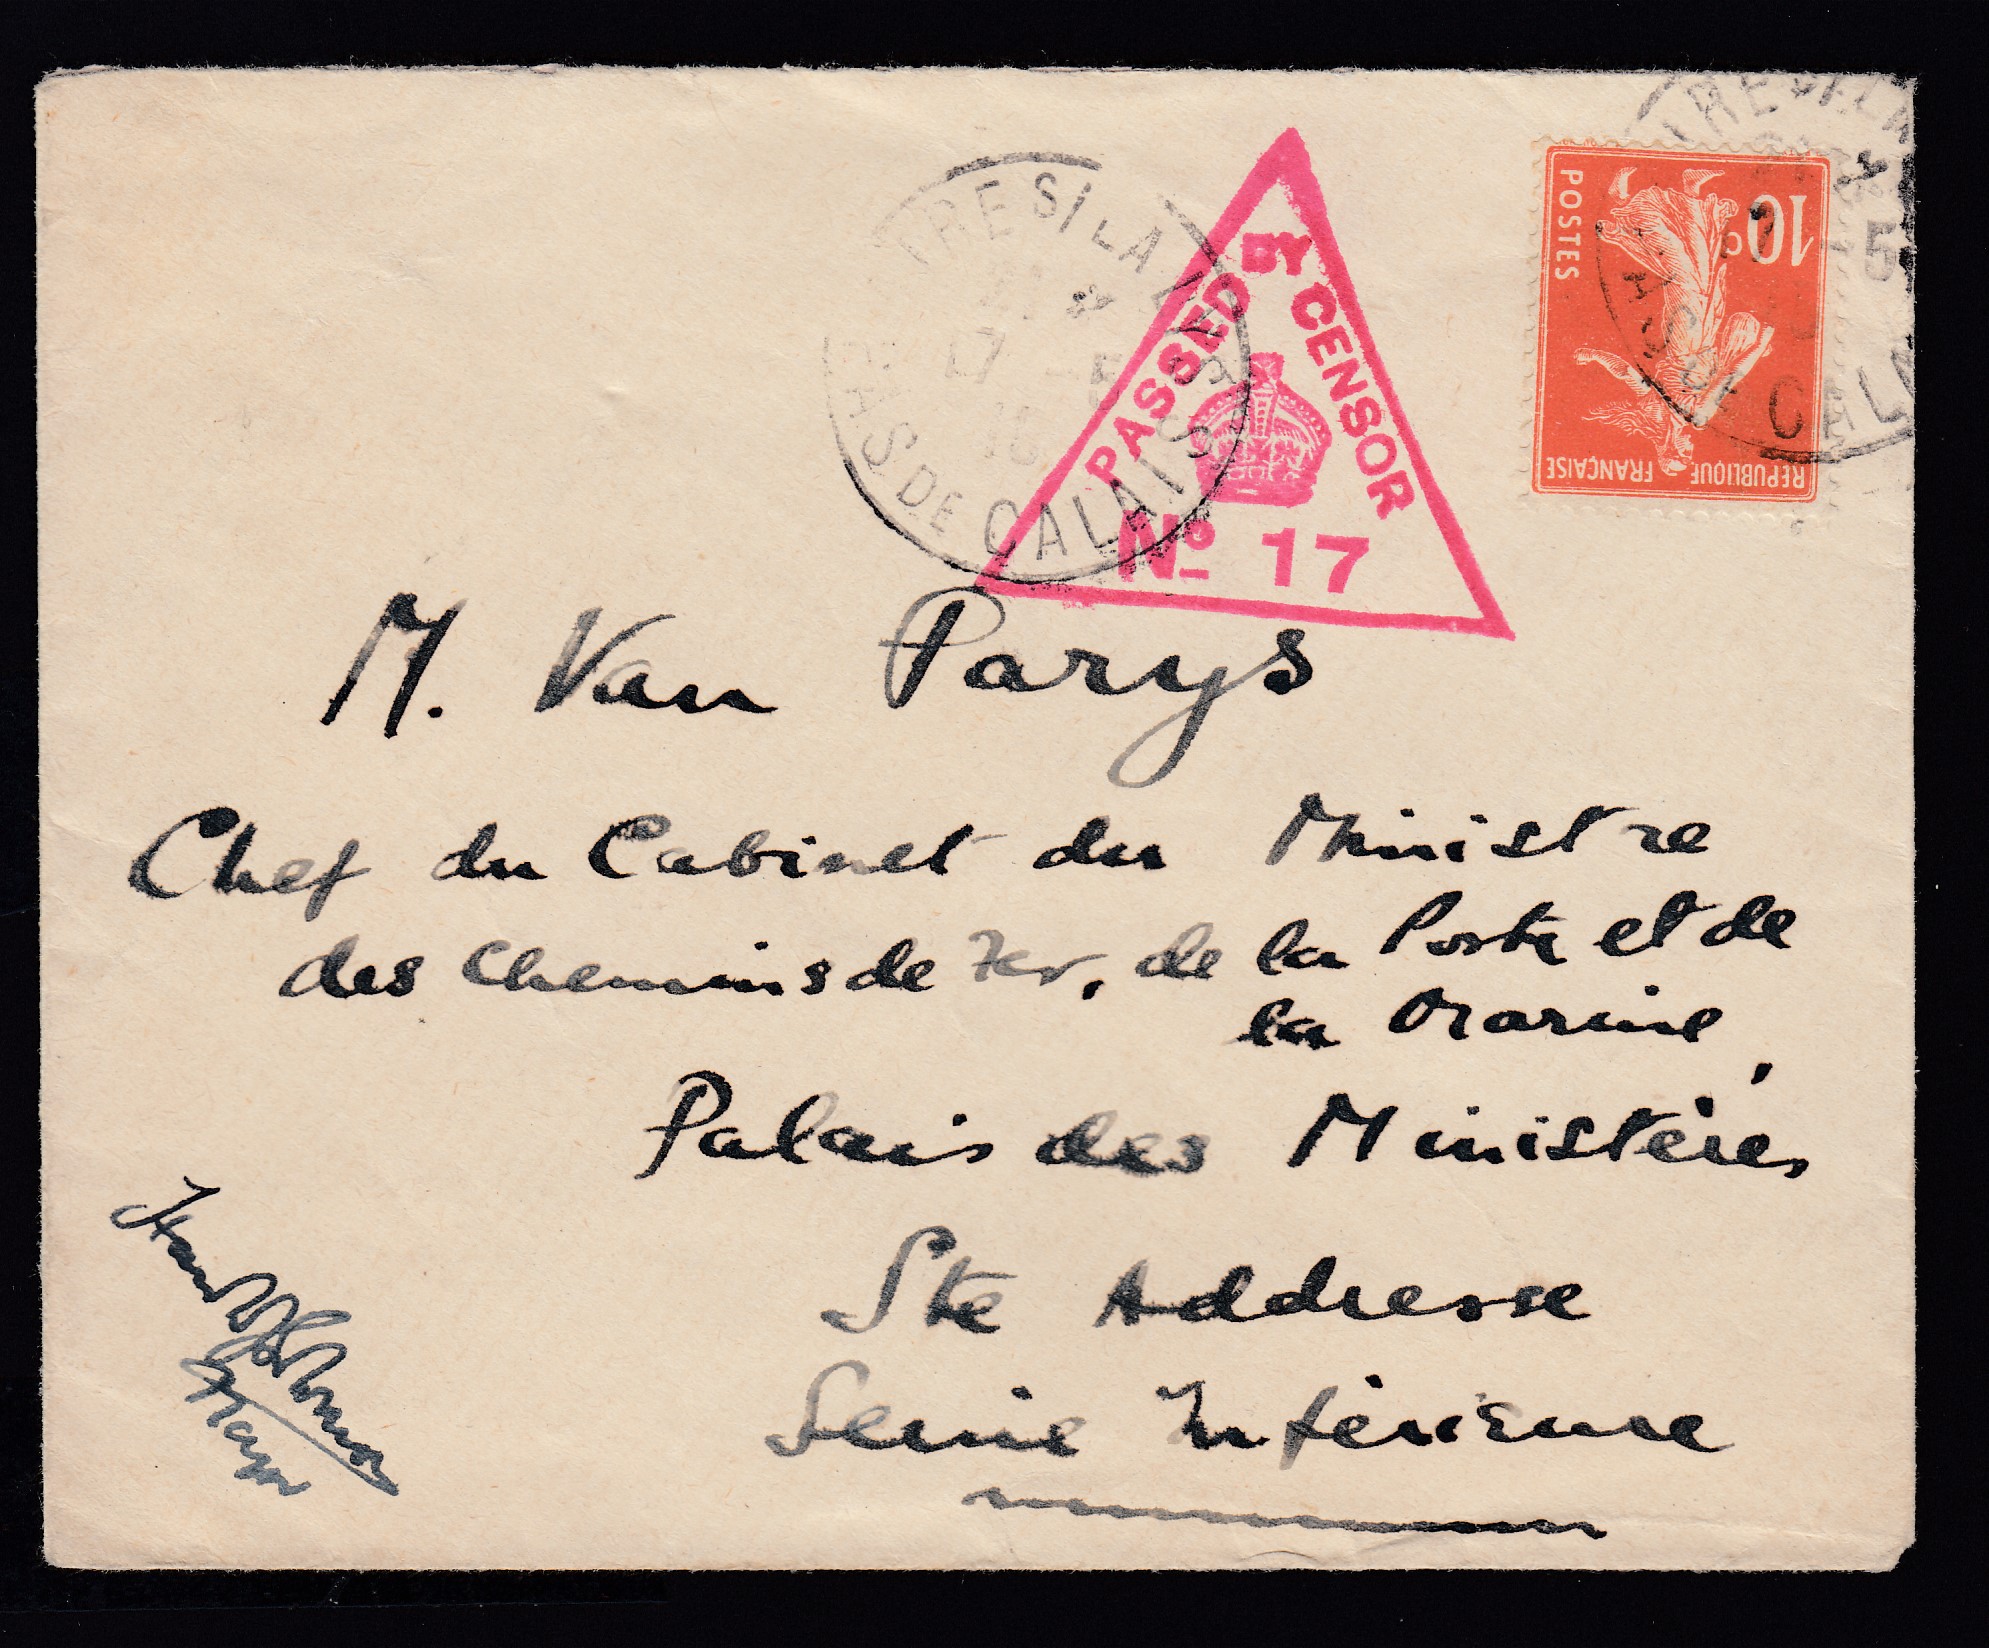 PASSED BY CENSOR
No 17
POSTES
10c
REPUBLIQUE FRANÇAISE
AIRE S/LA LYS
17 -5
16
PAS DE CALAIS
-5
PAS DE CALA
M. Van Parys
Chef du Cabinet du Ministre
des Chemins de Fer, de la Poste et de
la Marine,
Palais des Ministères
Ste Addresse
Seine Inférieure